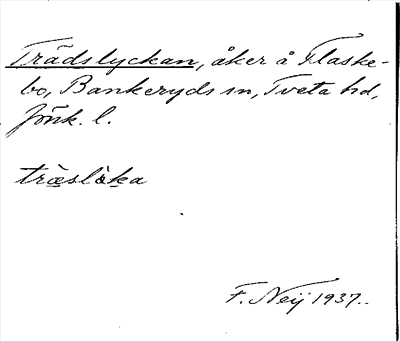 Trädslyckan, åker å Flaske-
bo, Bankeryds sn, Tveta hd,
Jönk. l.
træ̀slø̀ka
F. Neij 1937.